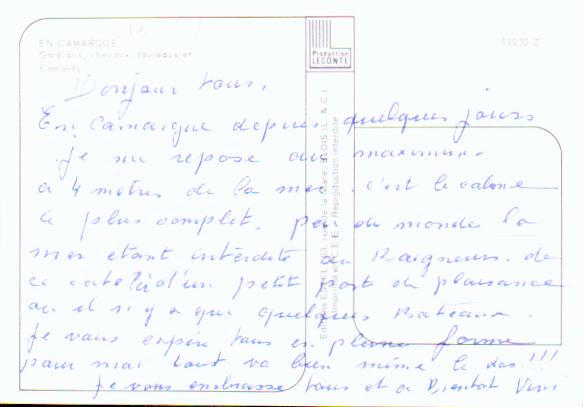 EN CAMARGUE
Gardians, chevaux, taureaux et
flamants
Production
LECONTE
11030 Z
Reproduction interdite
Bonjour tous,
En Camargue depuis quelques jours
je me repose au maximum
a 4 mètres de la mer, c'est le calme
le plus complet, peu de monde la
mer etant interdite au Baigneurs, de
ce coté là d'un petit port de plaisance
ou il n'y a que quelques Bateaux.
Je vous espère tous en pleine forme
pour moi tout va bien même le dos !!!
Je vous embrasse tous et a Bientot